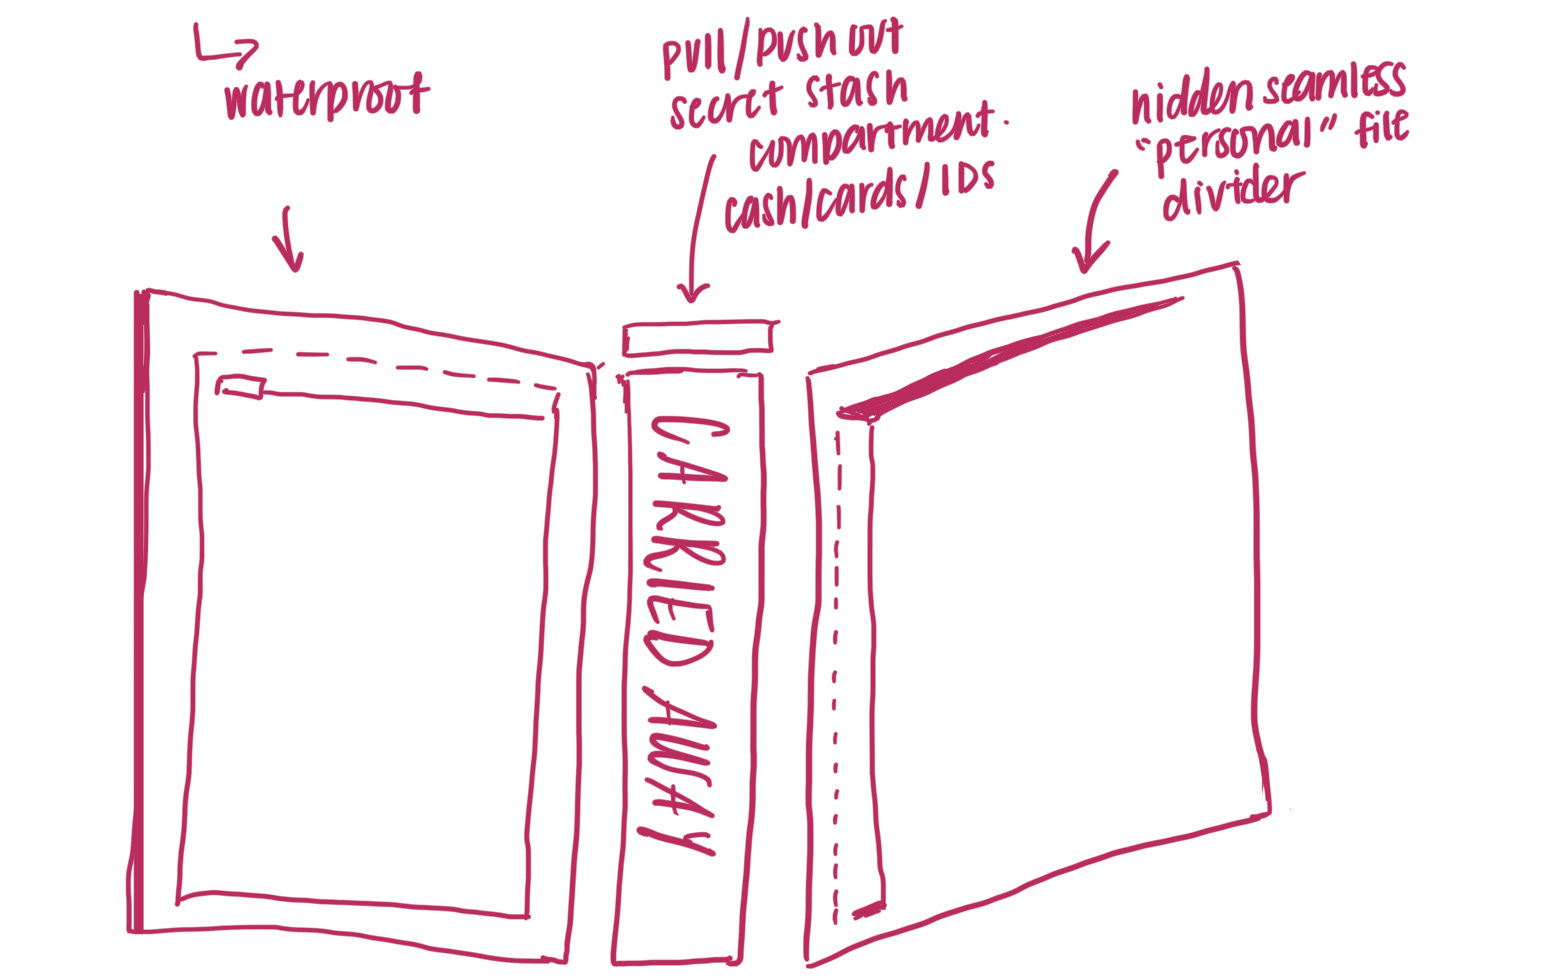 waterproof
pull/push out
secret stash
compartment.
cash/cards/IDs
hidden seamless
"personal" file
divider
CARRIED AWAY